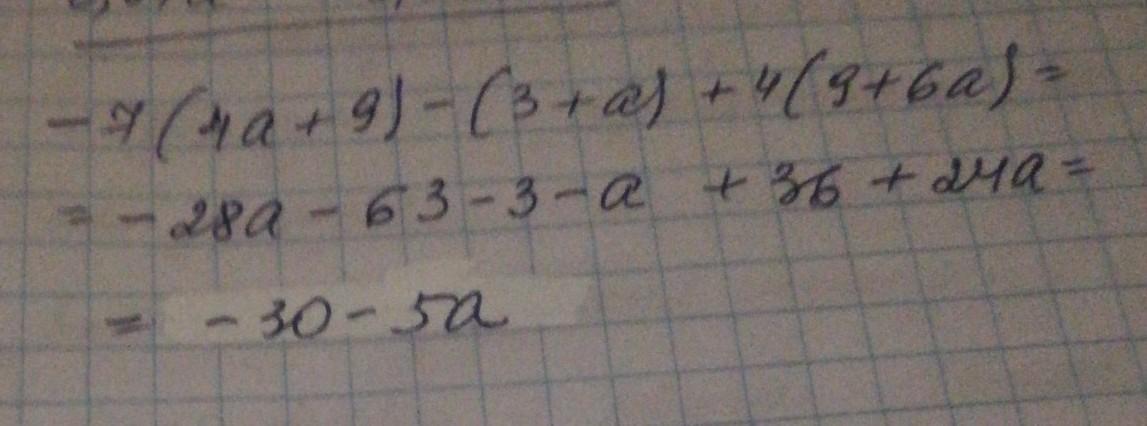 -7(4a+9)-(3+a)+4(9+6a)=
=-28a-63-3-a +36+24a=
= -30-5a